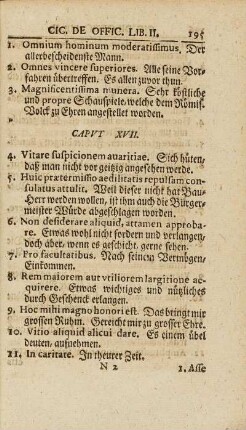 CIC. DE OFFIC. LIB. II. 195
1. Omnium hominum moderatissimus. Der
allerbescheidenste Mann.
2. Omnes vincere superiores. Alle seine Vor-
fahren übertreffen. Es allen zuvor thun.
3. Magnificentissima munera. Sehr köstliche
und propre Schauspiele, welche dem Römis.
Volck zu Ehren angestellet worden.
CAPVT XVII.
4. Vitare suspicionem avaritiae. Sich hüten,
daß man nicht vor geitzig angesehen werde.
5. Huic praetermisso aedilitatis repulsam con-
sulatus attulit. Weil dieser nicht hat Bau-
Herr werden wollen, ist ihm auch die Bürge-
meister Würde abgeschlagen worden.
6. Non desiderare aliquid, attamen approba-
re. Etwas wohl nicht fordern und verlangen,
doch aber, wenn es geschicht, gerne sehen.
7. Pro facultatibus. Nach seinem Vermögen,
Einkommen.
8. Rem maiorem aut vtiliorem largitione ac-
quirere. Etwas wichtiges und nützliches
durch Geschenck erlangen.
9. Hoc mihi magno honori est. Das bringt mir
grossen Ruhm. Gereicht mir zu grosser Ehre.
10. Vitio aliquid alicui dare. Es einem übel
deuten, aufnehmen.
11. In caritate. In theurer Zeit.
N 2 1. Asse